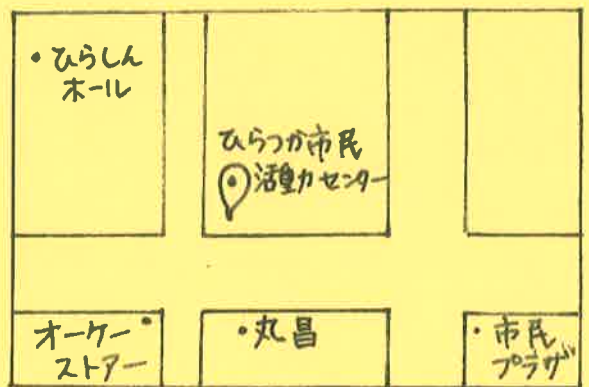 ・ひらしん
ホール
ひらつか市民
活動センター
オーケー
ストアー
・丸昌
・市民
プラザ